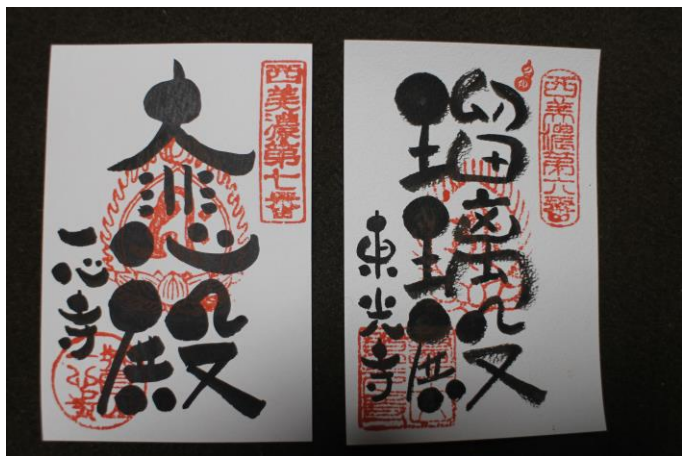 西美濃第七番
大悲殿
一心寺
西美濃第六番
瑠璃殿
東光寺